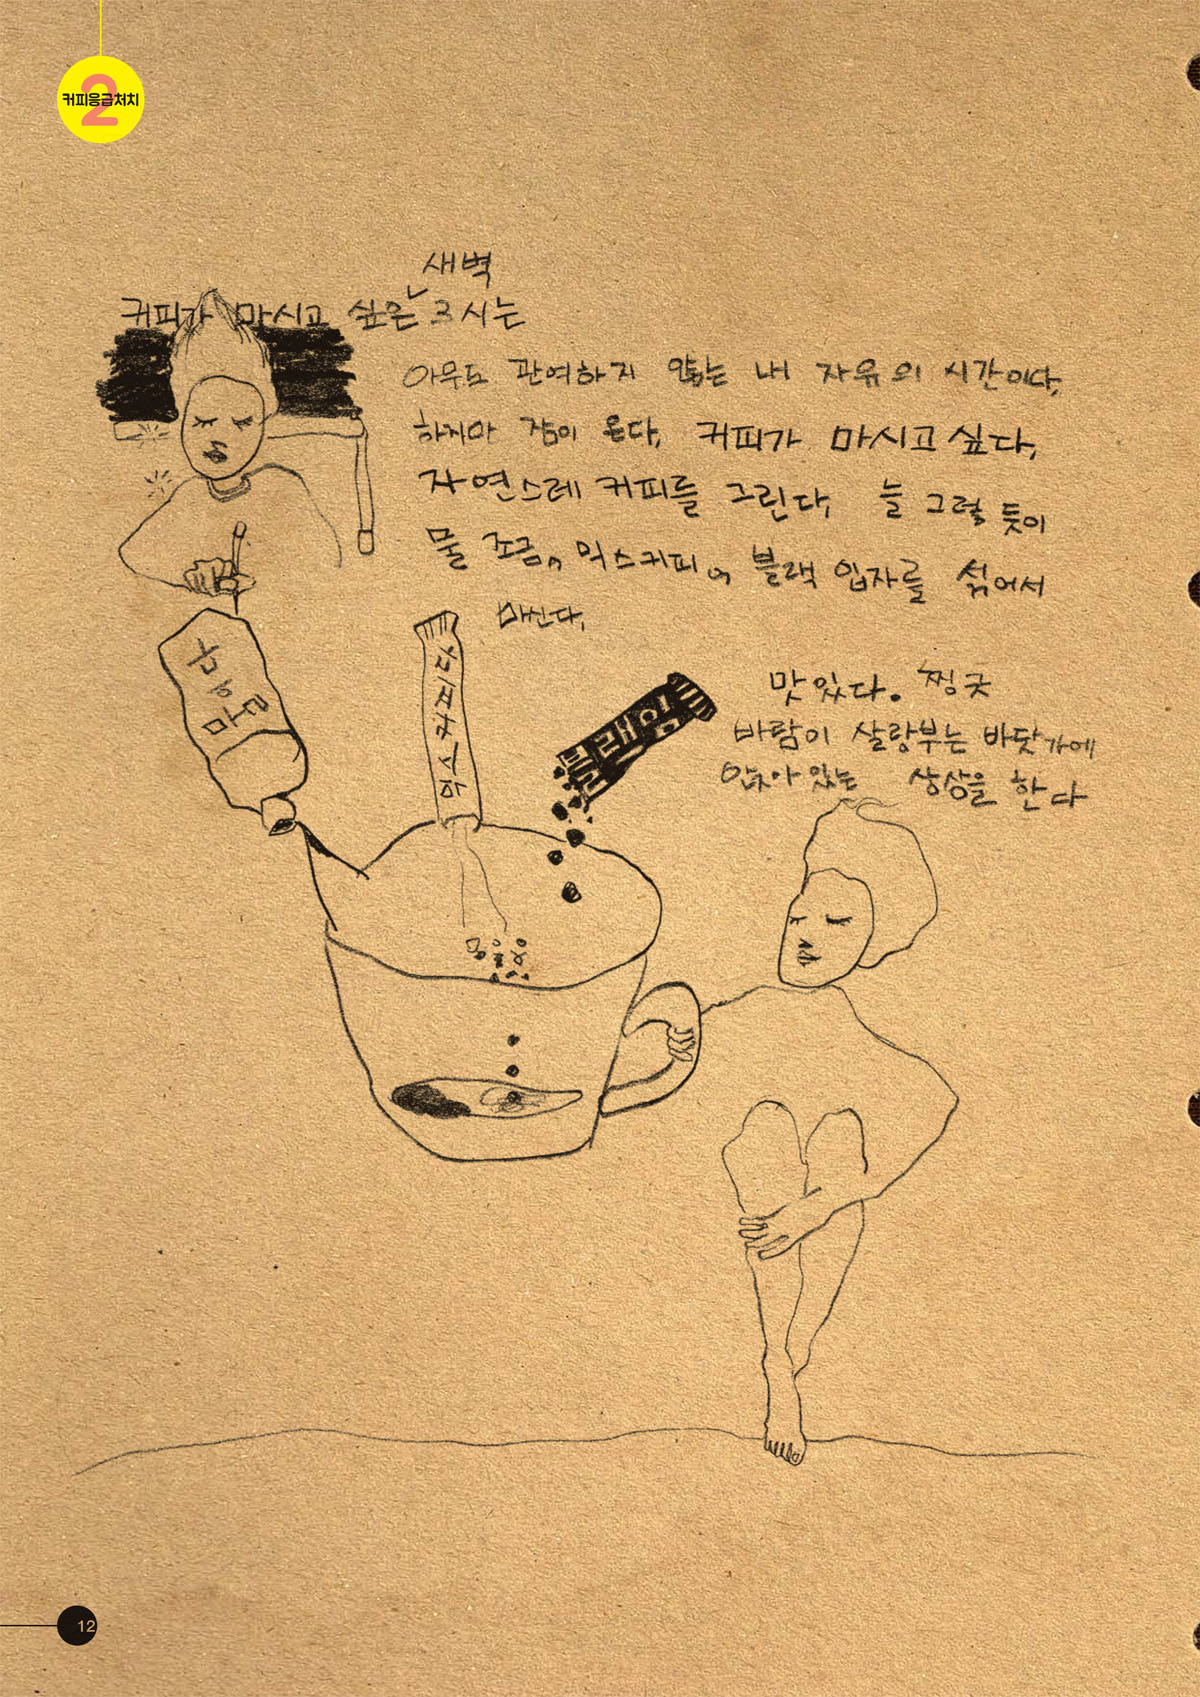 2
커피응급처치
새벽
커피가 마시고 싶은 3시는
아무도 관여하지 않는 내 자유의 시간이다,
하지만 잠이 온다, 커피가 마시고 싶다,
자연스레 커피를 그린다, 늘 그렇 듯이
물 조금, 믹스커피, 블랙 입자를 섞어서
마신다,
맛있다. 찡긋
바람이 살랑부는 바닷가에
앉아 있는 상상을 한다
12